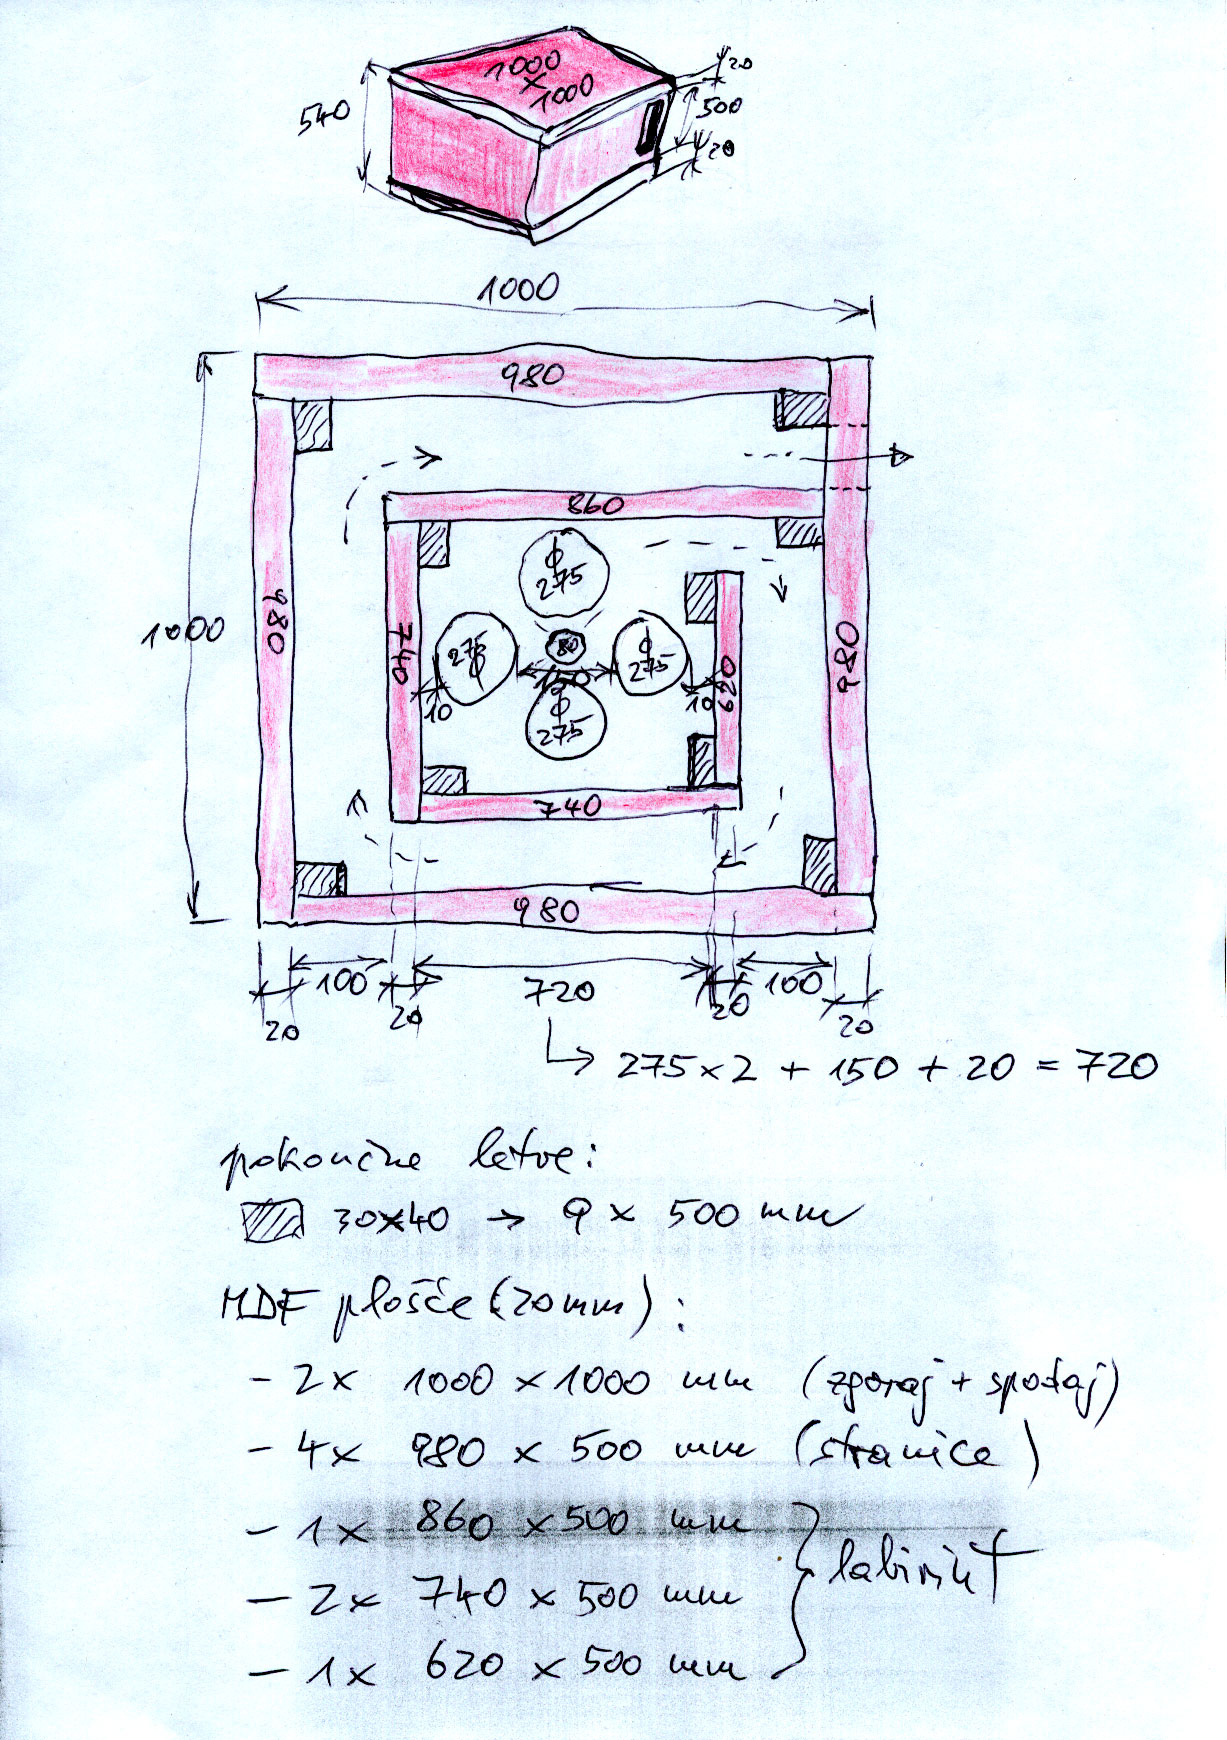 1000
×
1000
540
20
500
20
1000
980
860
Φ
275
1000
980
740
275
Φ
80
Φ
275
620
980
150
10
10
Φ
275
740
980
100
720
100
20
20
20
20
→ 275×2 + 150 + 20 = 720
pokončne letve:
30×40 → 9 × 500 mm
MDF plošče (20mm) :
- 2× 1000 × 1000 mm (zgoraj + spodaj)
- 4× 980 × 500 mm (stranice)
- 1× 860 × 500 mm
labirint
- 2× 740 × 500 mm
- 1× 620 × 500 mm